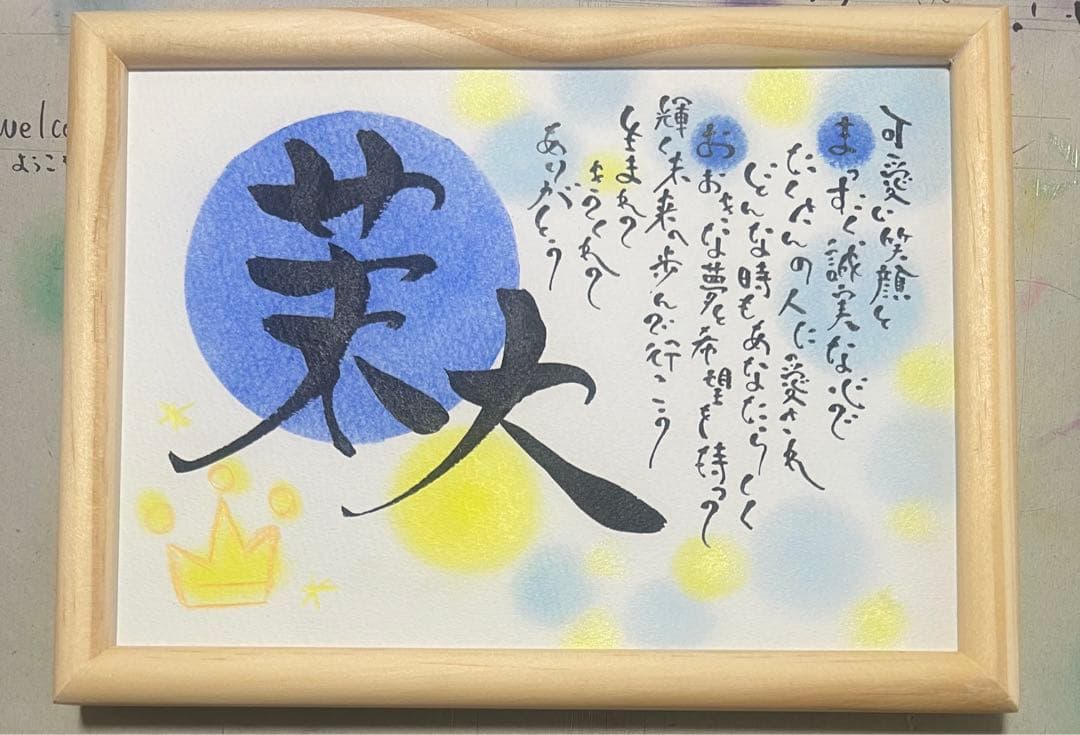 可愛い笑顔と
まっすぐ誠実な心で
たくさんの人に愛され
どんな時もあなたらしく
おおきな夢と希望を持って
輝く未来へ歩んで行こう
生まれて
きてくれて
ありがとう
茉大
welco
ようこ